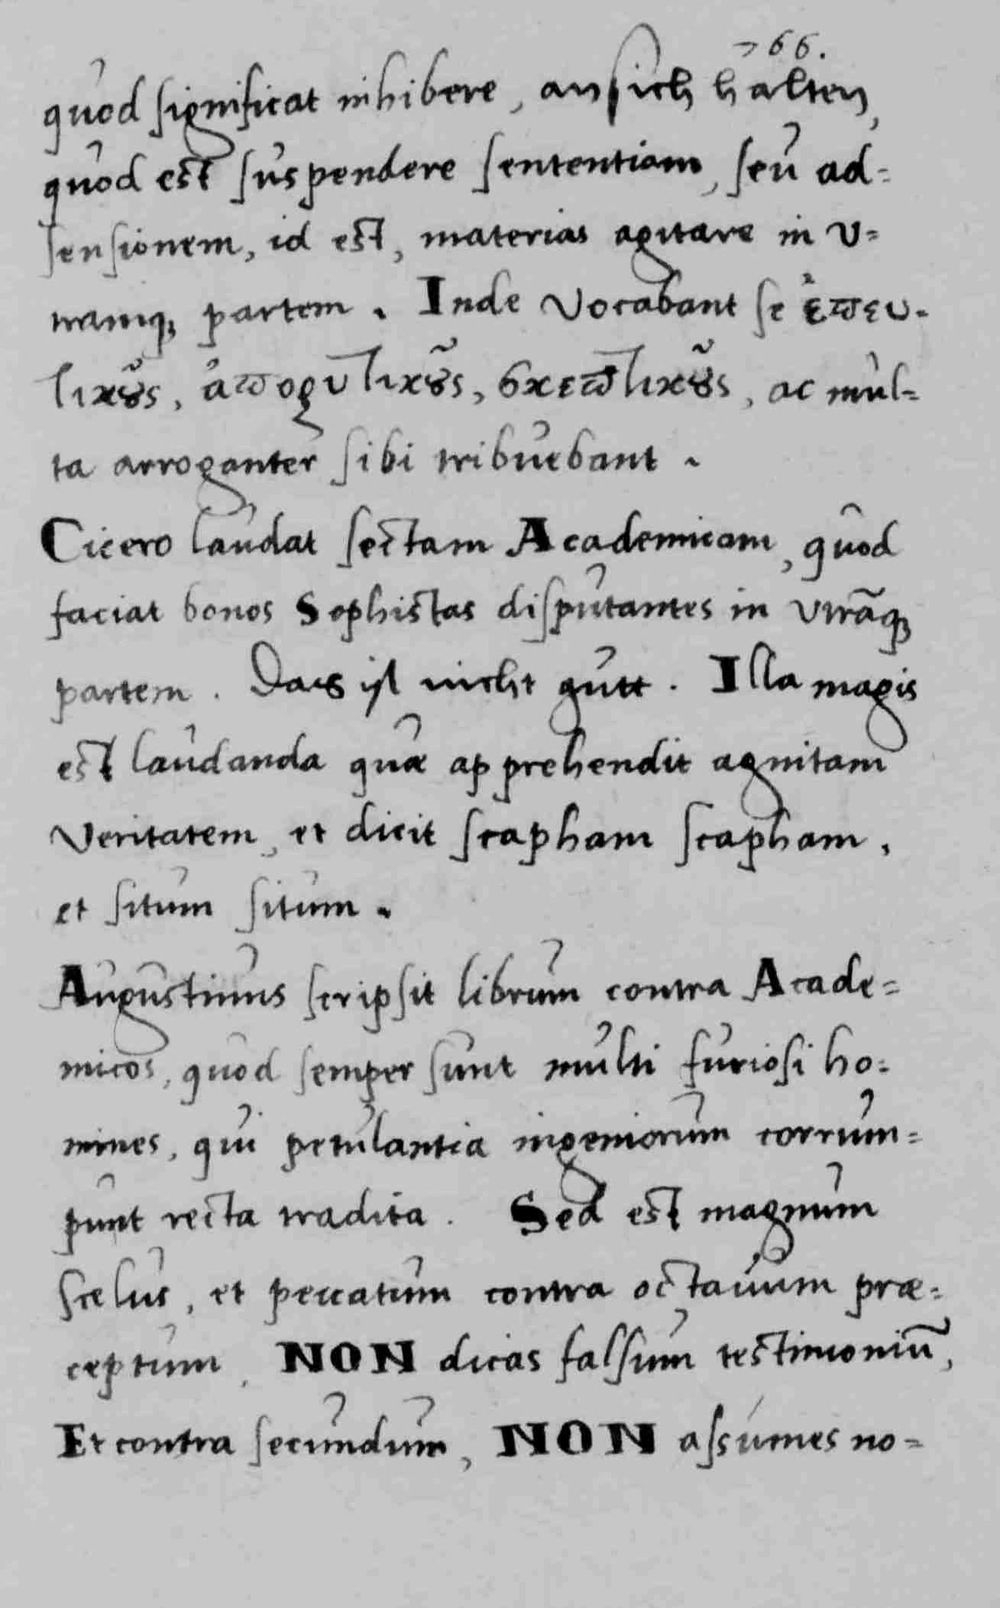 766.
quod significat inhibere, an sich halten,
quod est suspendere sententiam, seu ad=
sensionem, id est, materias agitare in v=
tramq; partem. Inde vocabant se ἐφεκ-
τικοὺς, ἀπορητικοὺς, σκεπτικοὺς, ac mul=
ta arroganter sibi tribuebant.
Cicero laudat sectam Academicam, quod
faciat bonos Sophistas disputantes in vtrāq;
partem. Das ist nicht gutt. Illa magis
est laudanda quæ apprehendit agnitam
veritatem, et dicit scapham scapham,
et situm situm.
Augustinus scripsit librum contra Acade=
micos, quod semper sunt multi furiosi ho=
mines, qui petulantia ingeniorum corrum=
punt recta tradita. Sed est magnum
scelus, et peccatum contra octauum præ=
ceptum, NON dicas falsum testimoniū,
Et contra secundum, NON assumes no=